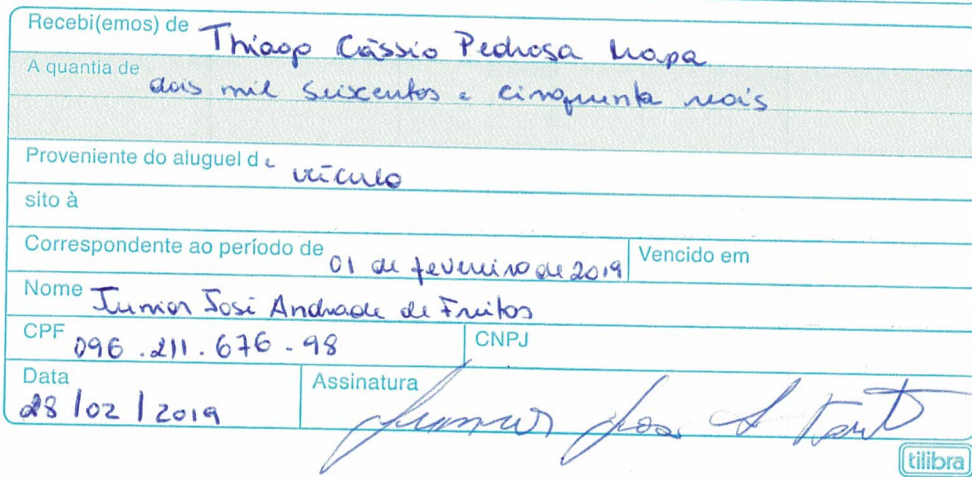 Recebi(emos) de Thiago Cássio Pedrosa Mapa
A quantia de
dois mil seiscentos e cinquenta reais
Proveniente do aluguel de veículo
sito à
Correspondente ao período de 01 de fevereiro de 2019 Vencido em
Nome Junior José Andrade de Freitas
CPF 096.211.676-98 CNPJ
Data Assinatura
28/02/2019
tilibra